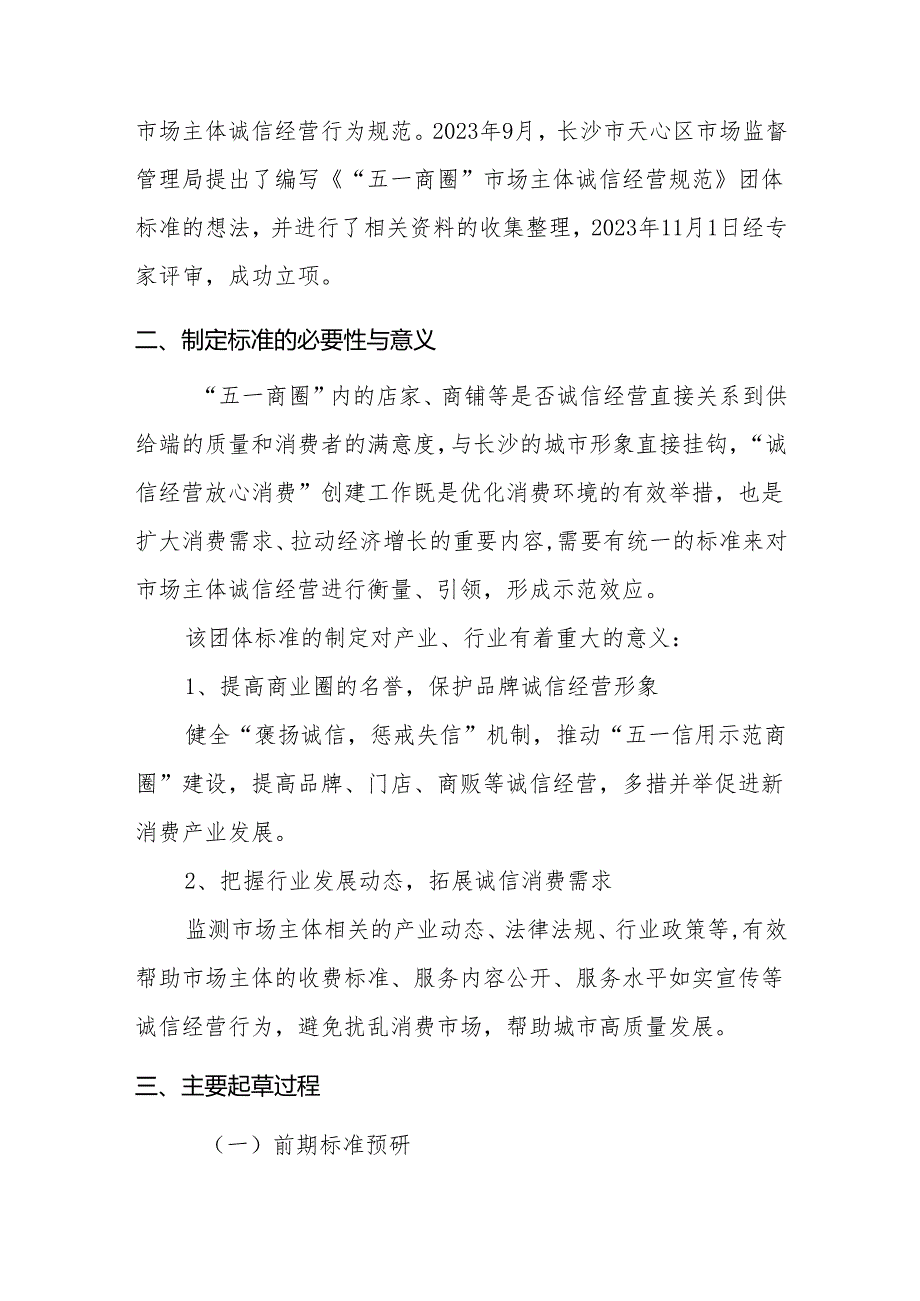 市场主体诚信经营行为规范。2023年9月，长沙市天心区市场监督
管理局提出了编写《“五一商圈”市场主体诚信经营规范》团体
标准的想法，并进行了相关资料的收集整理，2023年11月1日经专
家评审，成功立项。
二、制定标准的必要性与意义
“五一商圈”内的店家、商铺等是否诚信经营直接关系到供
给端的质量和消费者的满意度，与长沙的城市形象直接挂钩，“诚
信经营放心消费”创建工作既是优化消费环境的有效举措，也是
扩大消费需求、拉动经济增长的重要内容,需要有统一的标准来对
市场主体诚信经营进行衡量、引领，形成示范效应。
该团体标准的制定对产业、行业有着重大的意义：
1、提高商业圈的名誉，保护品牌诚信经营形象
健全“褒扬诚信，惩戒失信”机制，推动“五一信用示范商
圈”建设，提高品牌、门店、商贩等诚信经营，多措并举促进新
消费产业发展。
2、把握行业发展动态，拓展诚信消费需求
监测市场主体相关的产业动态、法律法规、行业政策等,有效
帮助市场主体的收费标准、服务内容公开、服务水平如实宣传等
诚信经营行为，避免扰乱消费市场，帮助城市高质量发展。
三、主要起草过程
（一）前期标准预研